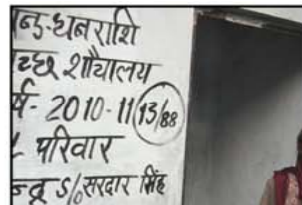 न्ड-धनराशि
च्छ शौचालय
र्ष- 2010-11 (13/88
परिवार
न्दू S/o सरदार सिंह